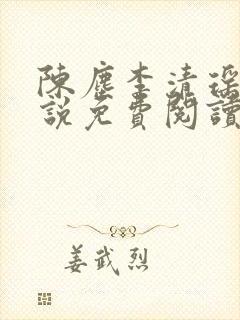 陳塵李清瑤
說免費閱讀
姜武烈